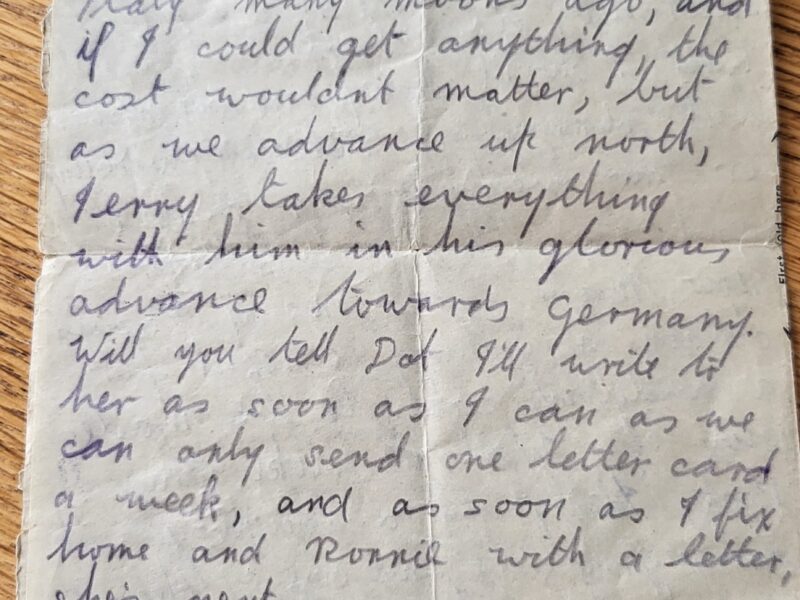 Italy many moons ago, and
if I could get anything, the
cost wouldnt matter, but
as we advance up north,
Jerry takes everything
with him in his glorious
advance towards Germany.
Will you tell Dot I'll write to
her as soon as I can as we
can only send one letter card
a week, and as soon as I fix
home and Ronnie with a letter,
she's next
First fold here